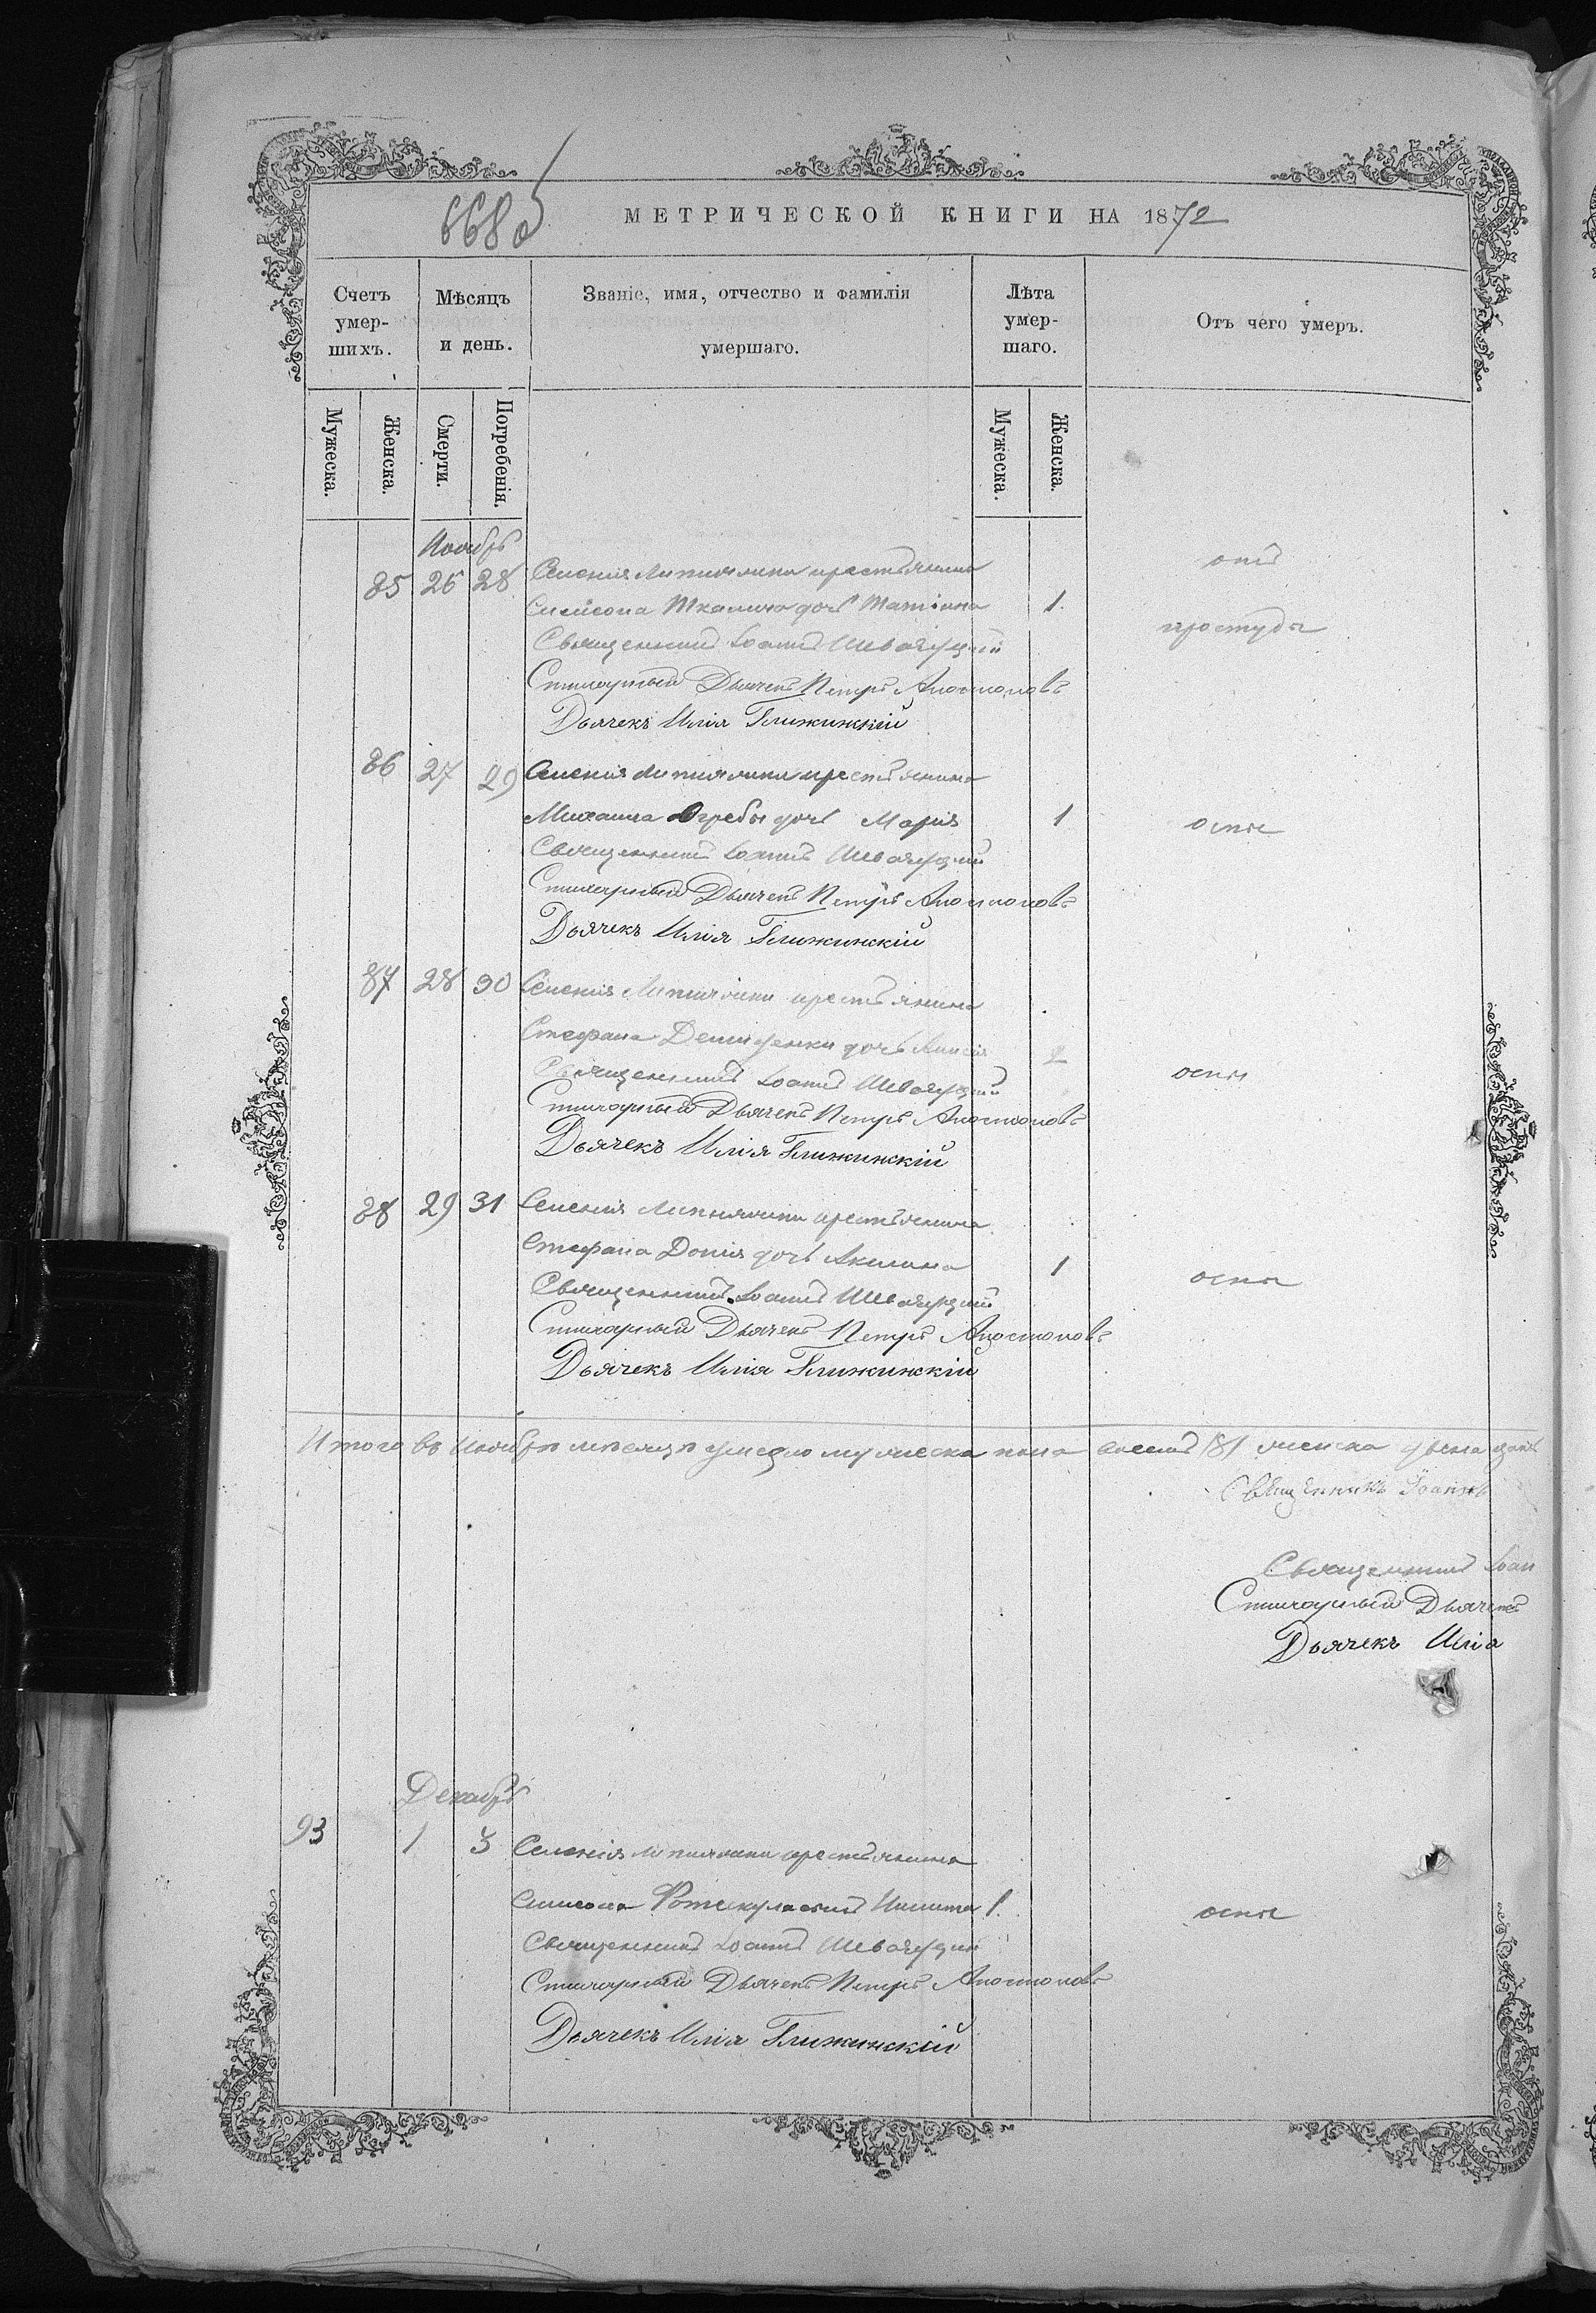 668 об
МЕТРИЧЕСКОЙ КНИГИ НА 1872
Счетъ умер-шихъ.
Мѣсяцъ и день.
Званіе, имя, отчество и фамилія умершаго.
Лѣта умер-шаго.
Отъ чего умеръ.
Мужеска. Женска. Смерти. Погребенія. Мужеска. Женска.
Ноябрь
85 26 28 Селенія крестьянина отъ
Симеона Ткалича дочь Татіана 1. простуды
Священникъ Іоаннъ
Стихарный Дьячекъ Петръ Апостоловъ
Дьячекъ Илія Глижинскій
86 27 29 Селенія крестьянина
Михаила дочь Марія 1 оспы
Священникъ Іоаннъ
Стихарный Дьячекъ Петръ Апостоловъ
Дьячекъ Илія Глижинскій
87 28 30 Селенія крестьянина
Стефана Демиденки дочь 2 оспы
Священникъ Іоаннъ
Стихарный Дьячекъ Петръ Апостоловъ
Дьячекъ Илія Глижинскій
88 29 31 Селенія крестьянина
Стефана Донія дочь Акилина 1 оспы
Священникъ Іоаннъ
Стихарный Дьячекъ Петръ Апостоловъ
Дьячекъ Илія Глижинскій
Итого въ Ноябрѣ мѣсяцѣ умерло мужеска пола восемь /8/ женска двенадцать
Священникъ Іоаннъ
Священникъ Іоан
Стихарный Дьячекъ
Дьячекъ Илія
Декабрь
93 1 3 Селенія крестьянина
Симеона сынъ Никита 1. оспы
Священникъ Іоаннъ
Стихарный Дьячекъ Петръ Апостоловъ
Дьячекъ Илія Глижинскій